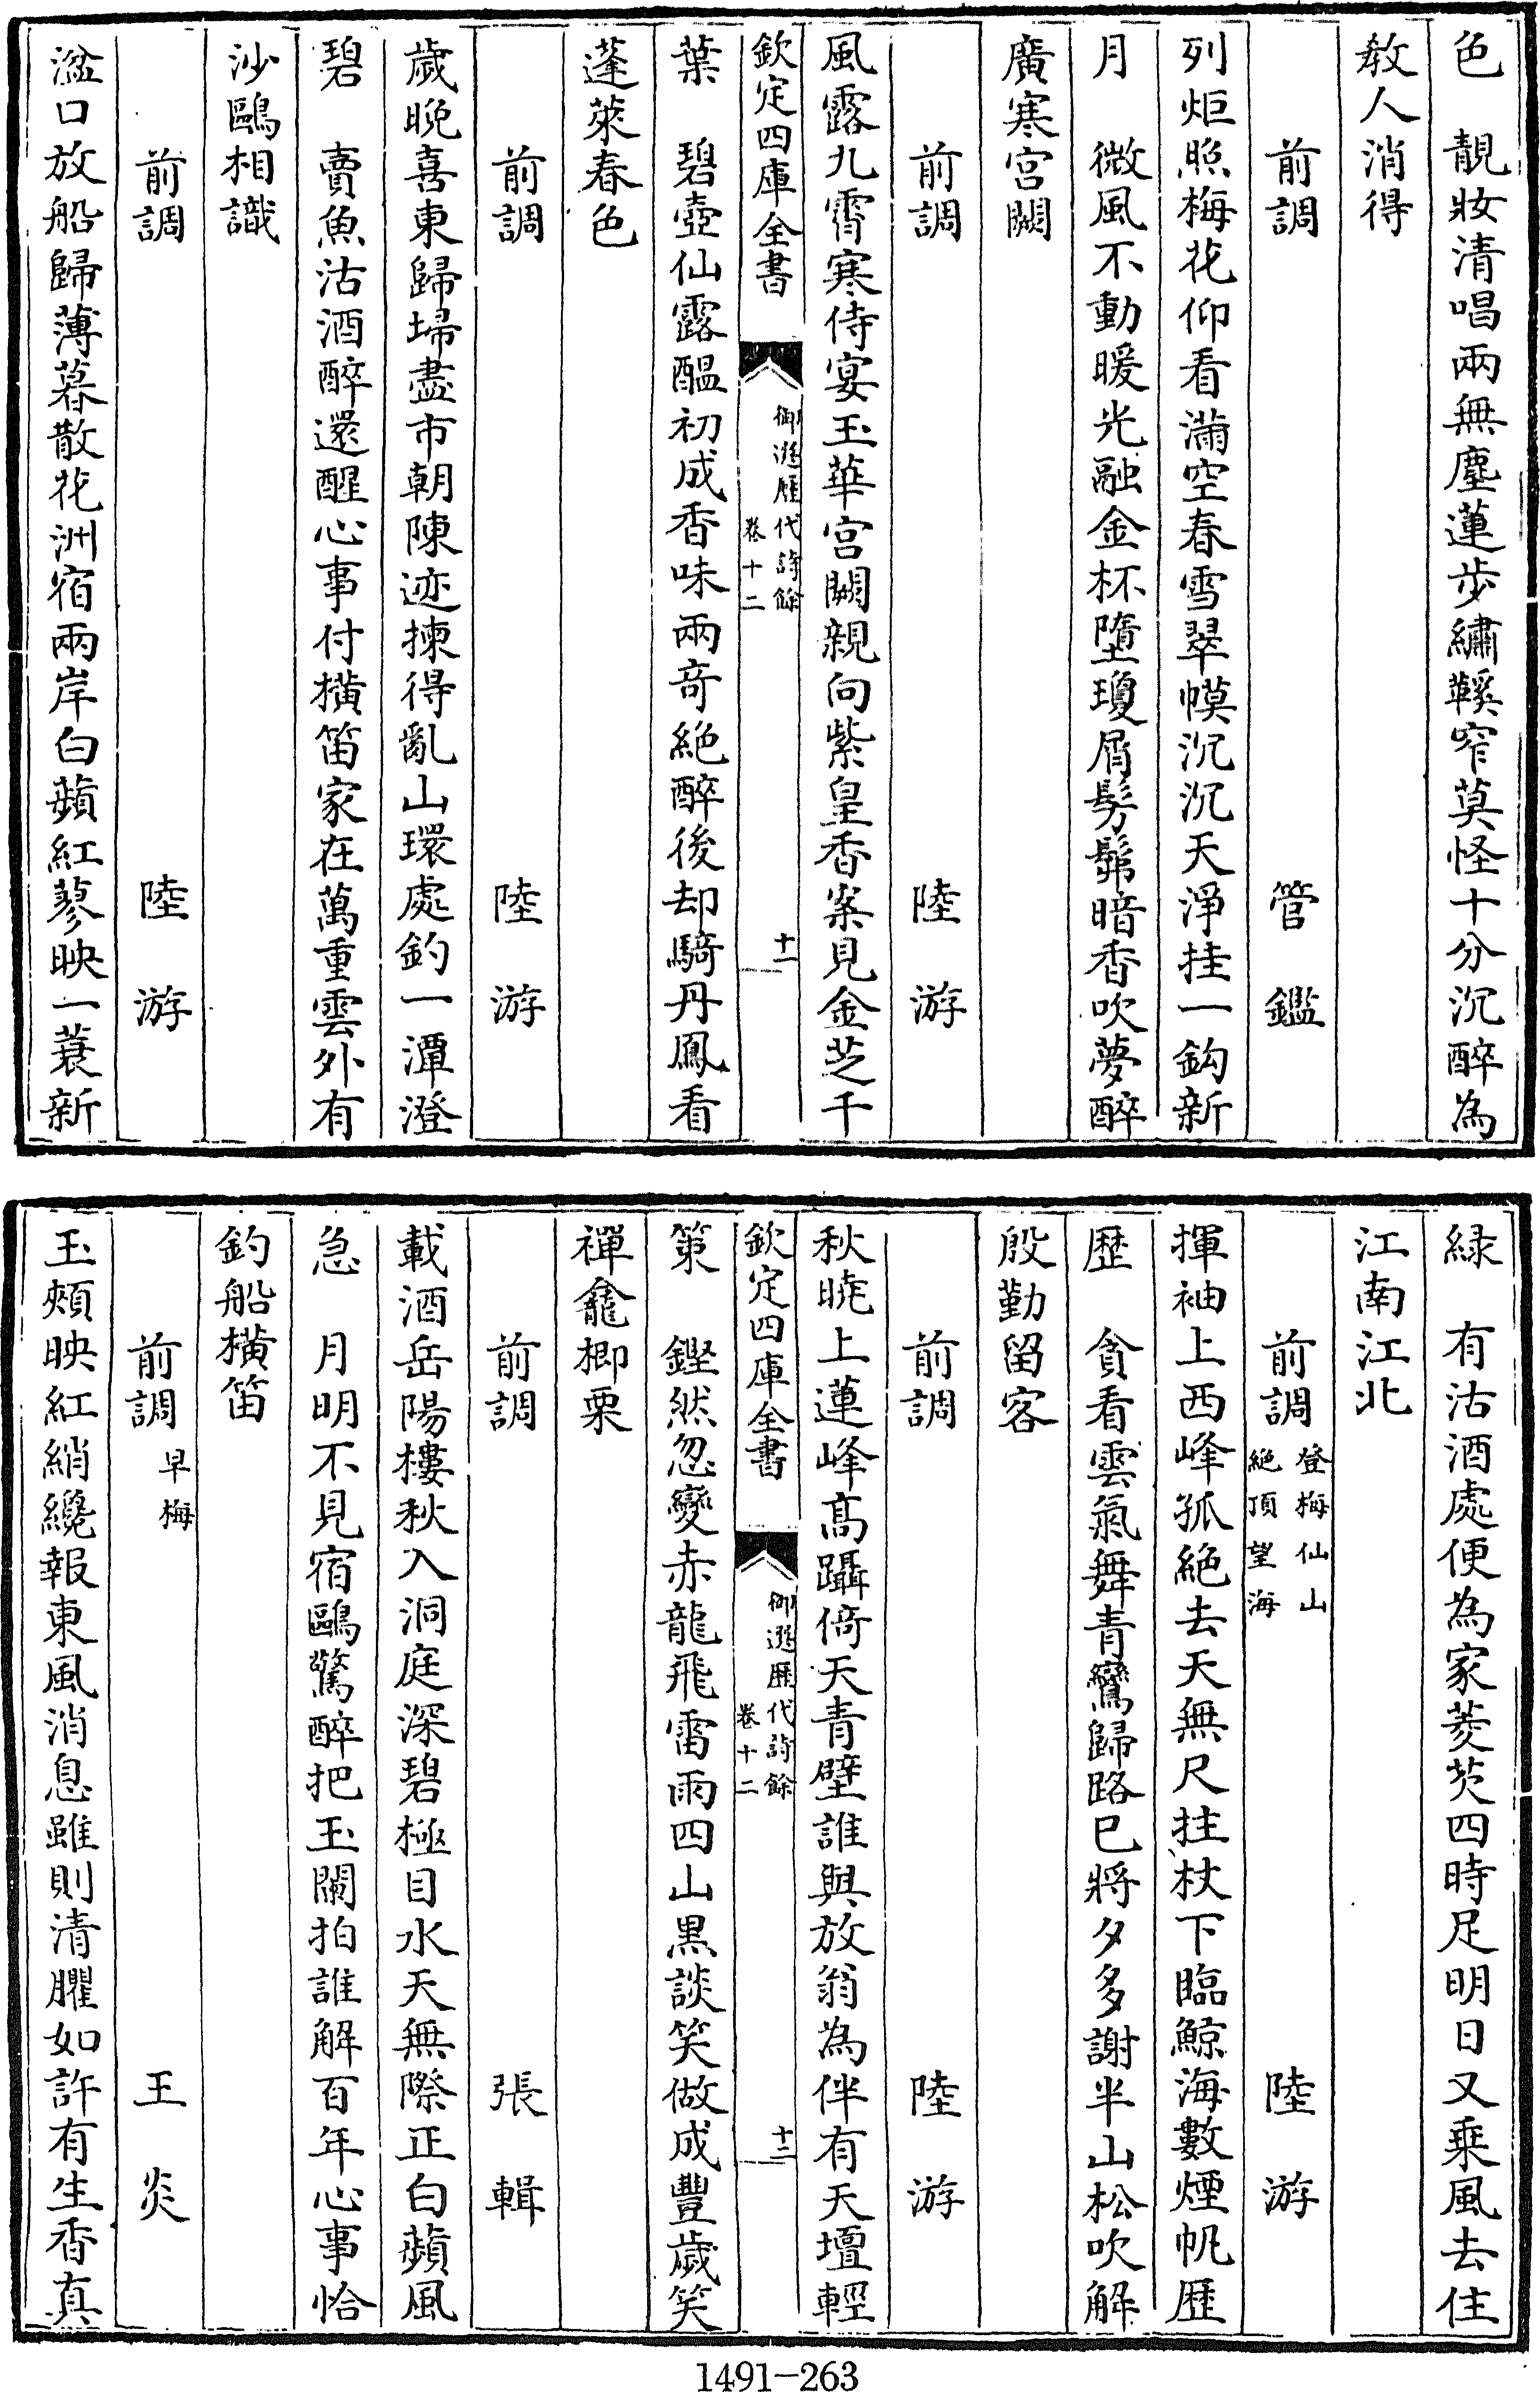 色　靚妝清唱兩無塵蓮步繡鞵窄莫怪十分沉醉為
教人消得
前調　管鑑
列炬照梅花仰看滿空春雪翠幙沉沉天淨挂一鈎新
月　微風不動暖光融金杯墮瓊屑髣髴暗香吹夢醉
廣寒宮闕
前調　陸游
風露九霄寒侍宴玉華宮闕親向紫皇香案見金芝千
欽定四庫全書　御選歷代詩餘　卷十二　十一
葉　碧壺仙露醖初成香味兩奇絶醉後却騎丹鳳看
蓬萊春色
前調　陸游
歲晚喜東歸埽盡市朝陳迹揀得亂山環處釣一潭澄
碧　賣魚沽酒醉還醒心事付橫笛家在萬重雲外有
沙鷗相識
前調　陸游
湓口放船歸薄暮散花洲宿兩岸白蘋紅蓼映一蓑新
緑　有沽酒處便為家菱芡四時足明日又乗風去住
江南江北
前調　登梅仙山絶頂望海　陸游
揮袖上西峰孤絶去天無尺拄杖下臨鯨海數煙帆歷
歷　貪看雲氣舞青鸞歸路已將夕多謝半山松吹解
殷勤留客
前調　陸游
秋曉上蓮峰髙躡倚天青壁誰與放翁為伴有天壇輕
欽定四庫全書　御選歷代詩餘　卷十二　十二
策　鏗然忽變赤龍飛雷雨四山黒談笑做成豐歲笑
禪龕楖栗
前調　張輯
載酒岳陽樓秋入洞庭深碧極目水天無際正白蘋風
急　月明不見宿鷗驚醉把玉闌拍誰解百年心事恰
釣船橫笛
前調　早梅　王炎
玉頰映紅綃纔報東風消息雖則清臞如許有生香真
1491-263